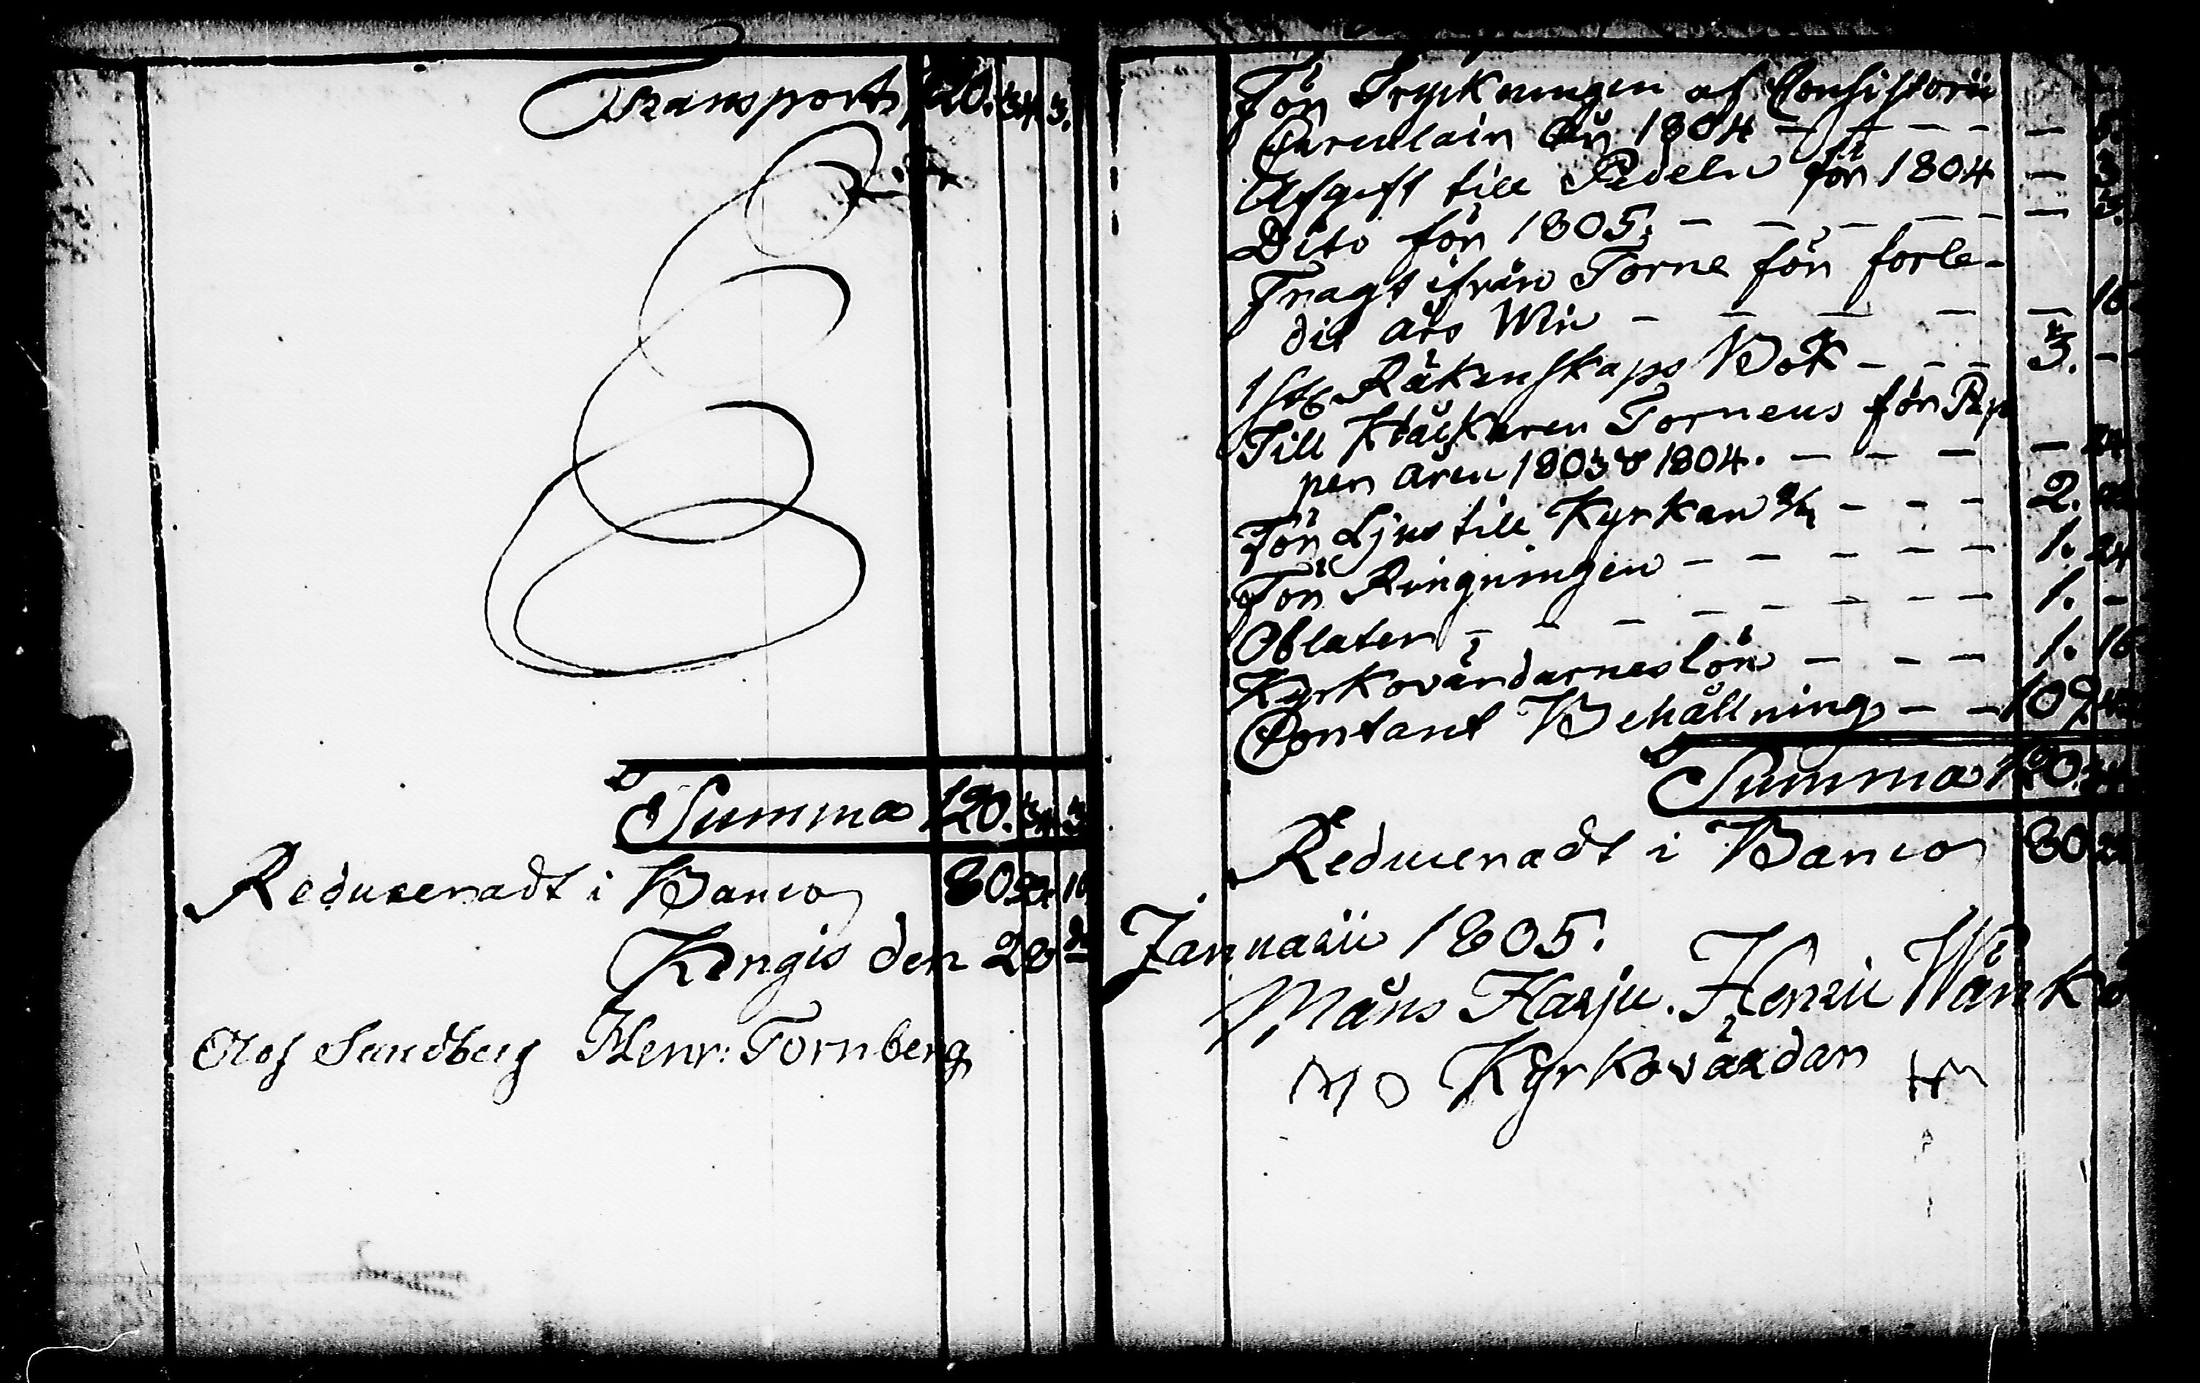 Transport 120. 34. 3.
Summa 120. 34. 3
Reducenadt i Banco 80. 22. 10
Kengis den 20de
Olof Sundberg Henr: Fornberg
För Tryckningen af Consistorii
Circulair år 1804 - - - - - -
Afgift till Pedeln för 1804 - 3
Dito för 1805. - - - - - - 3.
Fragt ifrån Torne för forle-
dit års Win - - - - - - 16
1 st. Räkenskaps Bok - - - 3. -
Till Klåckaren Torneus för Pap
per åren 1803 & 1804. - - - - 24
För Ljus till Kyrkan - - - 2.
För Ringningen - - - - - 1. 24
Oblater - - - - - - - - 1. -
Kyrkovärdarnes lön - - - 1. 16
Contant Behållning - - 109.
Summa 120.
Reducenadt i Banco 80
Januarii 1805.
Måns Harju. Henric Wänkö
M O Kyrkovärdar HM